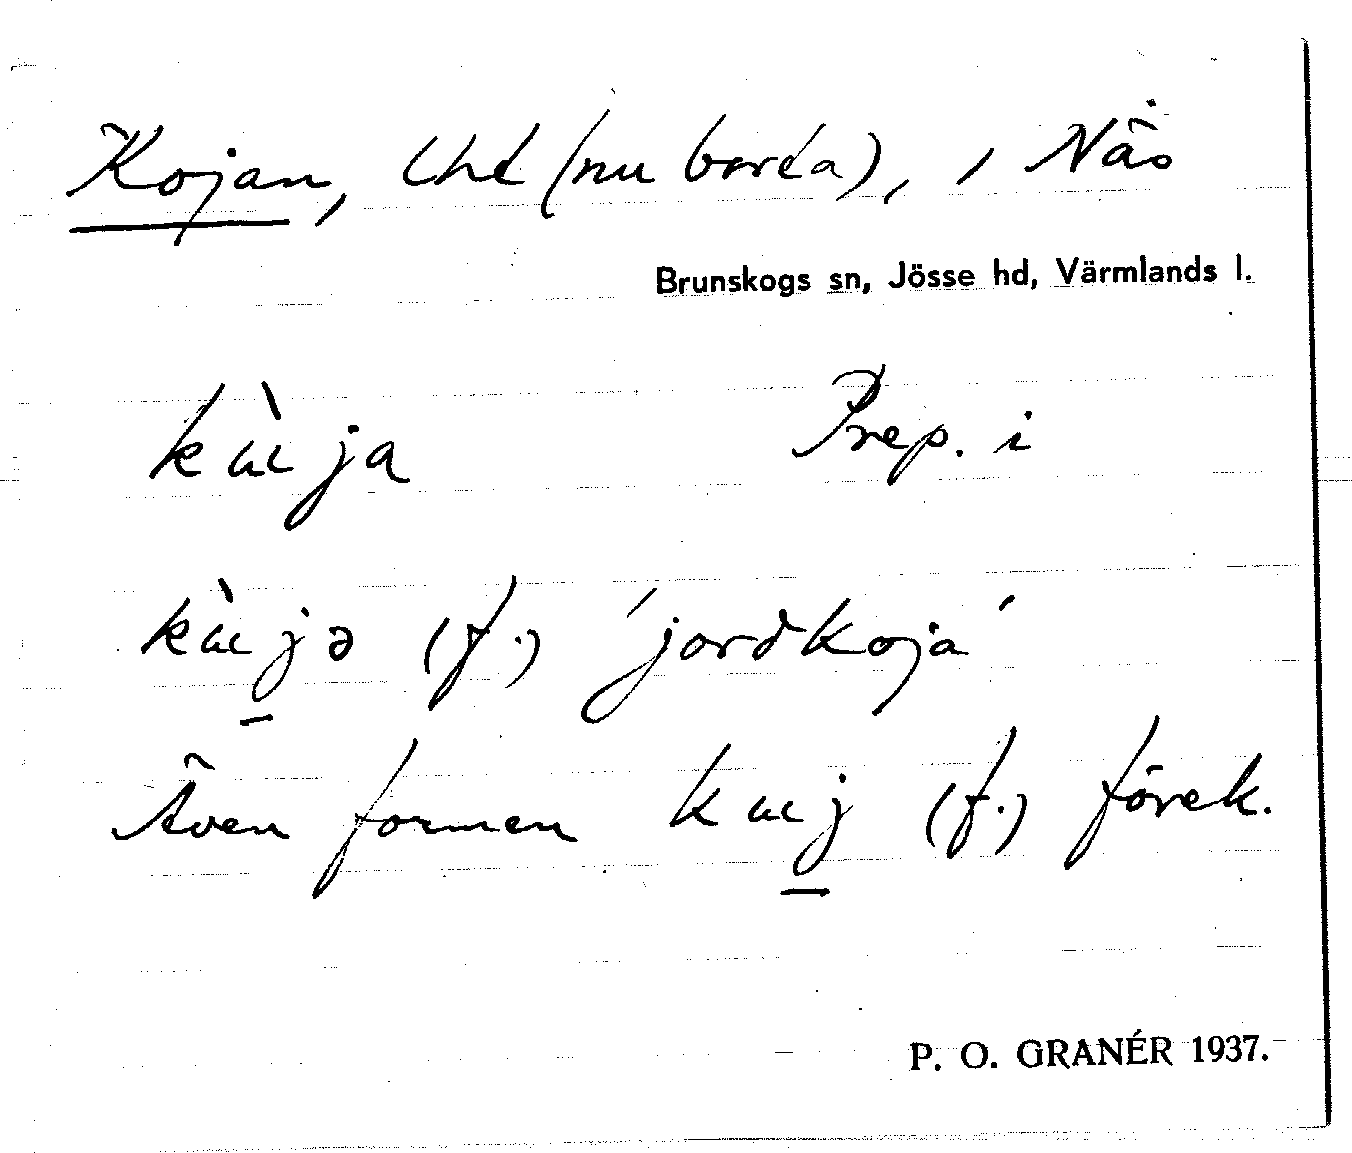 Kojan, lht (nu borta), i Näs
Brunskogs sn, Jösse hd, Värmlands l.
kùɯja Prep. i
kùɯjə (f.) 'jordkoja'
Även formen kɯj (f.) förek.
P. O. GRANÉR 1937.